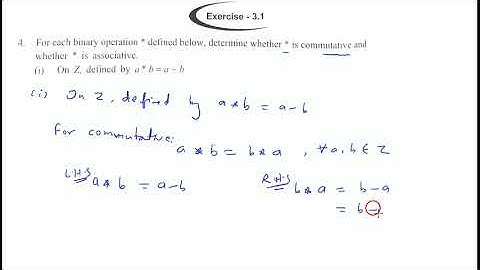 Exercise - 3.1
4. For each binary operation * defined below, determine whether * is commutative and
whether * is associative.
(i) On Z, defined by a * b = a − b
(i) On Z, defined by a * b = a - b
For commutative:
a * b = b * a , ∀ a, b ∈ Z
LHS a * b = a - b R.H.S b * a = b - a
= b -